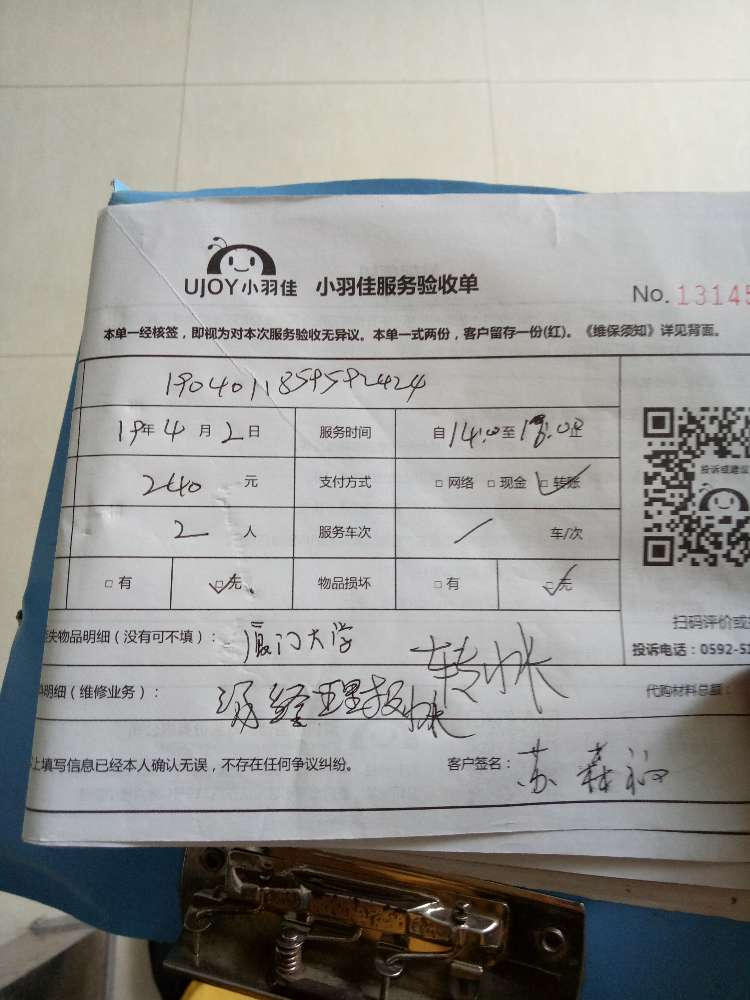 UJOY小羽佳 小羽佳服务验收单
No. 13145
本单一经核签，即视为对本次服务验收无异议。本单一式两份，客户留存一份(红)。《维保须知》详见背面。
19年4月2日 服务时间 自14:0至18:0止
240元 支付方式 □网络 □现金 □转账
2人 服务车次 / 车/次
□有 □无 物品损坏 □有 □无
投诉或建议
扫码评价或
失物品明细（没有可不填）： 厦门大学 转帐
投诉电话：0592-51
明细（维修业务）： 经理报帐
代购材料总额：
上填写信息已经本人确认无误，不存在任何争议纠纷。 客户签名： 苏森